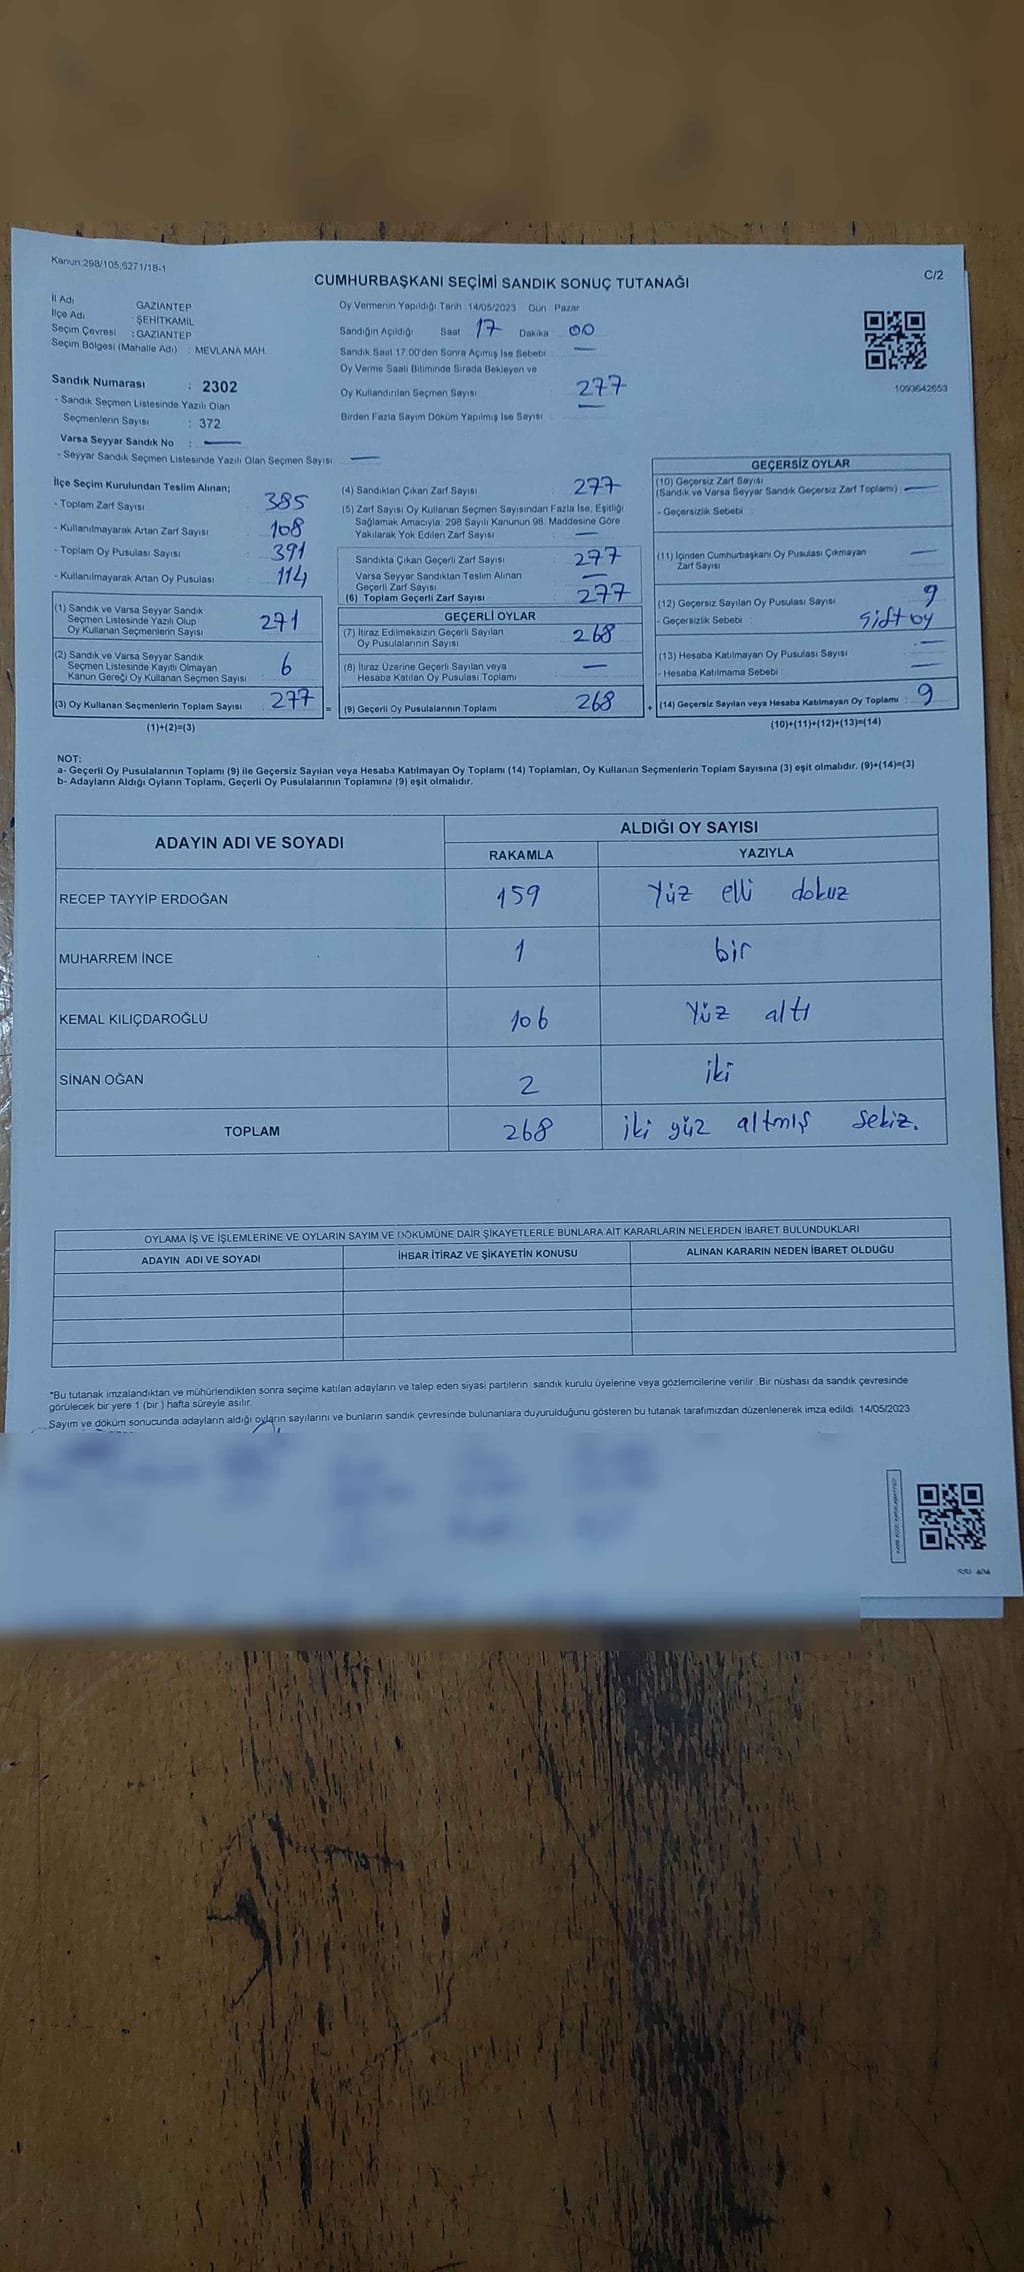 Kanun:298/105;6271/18-1
C/2
CUMHURBAŞKANI SEÇİMİ SANDIK SONUÇ TUTANAĞI
İl Adı GAZİANTEP
İlçe Adı : ŞEHİTKAMİL
Seçim Çevresi : GAZİANTEP
Seçim Bölgesi (Mahalle Adı) : MEVLANA MAH.
Sandık Numarası : 2302
- Sandık Seçmen Listesinde Yazılı Olan
Seçmenlerin Sayısı : 372
Varsa Seyyar Sandık No : —
- Seyyar Sandık Seçmen Listesinde Yazılı Olan Seçmen Sayısı —
Oy Vermenin Yapıldığı Tarih :14/05/2023 Gün : Pazar
Sandığın Açıldığı Saat 17 Dakika 00
Sandık Saat 17.00'den Sonra Açılmış İse Sebebi —
Oy Verme Saati Bitiminde Sırada Bekleyen ve
Oy Kullandırılan Seçmen Sayısı 277
Birden Fazla Sayım Döküm Yapılmış İse Sayısı —
1093642653
İlçe Seçim Kurulundan Teslim Alınan;
- Toplam Zarf Sayısı 385
- Kullanılmayarak Artan Zarf Sayısı 108
- Toplam Oy Pusulası Sayısı 391
- Kullanılmayarak Artan Oy Pusulası 114
(1) Sandık ve Varsa Seyyar Sandık
Seçmen Listesinde Yazılı Olup
Oy Kullanan Seçmenlerin Sayısı 271
(2) Sandık ve Varsa Seyyar Sandık
Seçmen Listesinde Kayıtlı Olmayan
Kanun Gereği Oy Kullanan Seçmen Sayısı 6
(3) Oy Kullanan Seçmenlerin Toplam Sayısı 277
(1)+(2)=(3)
(4) Sandıktan Çıkan Zarf Sayısı 277
(5) Zarf Sayısı Oy Kullanan Seçmen Sayısından Fazla İse, Eşitliği
Sağlamak Amacıyla, 298 Sayılı Kanunun 98. Maddesine Göre
Yakılarak Yok Edilen Zarf Sayısı —
Sandıkta Çıkan Geçerli Zarf Sayısı 277
Varsa Seyyar Sandıktan Teslim Alınan
Geçerli Zarf Sayısı —
(6) Toplam Geçerli Zarf Sayısı 277
GEÇERLİ OYLAR
(7) İtiraz Edilmeksizin Geçerli Sayılan
Oy Pusulalarının Sayısı 268
(8) İtiraz Üzerine Geçerli Sayılan veya
Hesaba Katılan Oy Pusulası Toplamı —
= (9) Geçerli Oy Pusulalarının Toplamı 268
GEÇERSİZ OYLAR
(10) Geçersiz Zarf Sayısı
(Sandık ve Varsa Seyyar Sandık Geçersiz Zarf Toplamı) —
- Geçersizlik Sebebi
(11) İçinden Cumhurbaşkanı Oy Pusulası Çıkmayan
Zarf Sayısı —
(12) Geçersiz Sayılan Oy Pusulası Sayısı 9
- Geçersizlik Sebebi : Çift oy
(13) Hesaba Katılmayan Oy Pusulası Sayısı —
- Hesaba Katılmama Sebebi —
+ (14) Geçersiz Sayılan veya Hesaba Katılmayan Oy Toplamı : 9
(10)+(11)+(12)+(13)=(14)
NOT:
a- Geçerli Oy Pusulalarının Toplamı (9) ile Geçersiz Sayılan veya Hesaba Katılmayan Oy Toplamı (14) Toplamları, Oy Kullanan Seçmenlerin Toplam Sayısına (3) eşit olmalıdır. (9)+(14)=(3)
b- Adayların Aldığı Oyların Toplamı, Geçerli Oy Pusulalarının Toplamına (9) eşit olmalıdır.
ADAYIN ADI VE SOYADI ALDIĞI OY SAYISI
RAKAMLA YAZIYLA
RECEP TAYYİP ERDOĞAN 159 Yüz elli dokuz
MUHARREM İNCE 1 bir
KEMAL KILIÇDAROĞLU 106 Yüz altı
SİNAN OĞAN 2 iki
TOPLAM 268 iki yüz altmış sekiz.
OYLAMA İŞ VE İŞLEMLERİNE VE OYLARIN SAYIM VE DÖKÜMÜNE DAİR ŞİKAYETLERLE BUNLARA AİT KARARLARIN NELERDEN İBARET BULUNDUKLARI
ADAYIN ADI VE SOYADI İHBAR İTİRAZ VE ŞİKAYETİN KONUSU ALINAN KARARIN NEDEN İBARET OLDUĞU
*Bu tutanak imzalandıktan ve mühürlendikten sonra seçime katılan adayların ve talep eden siyasi partilerin sandık kurulu üyelerine veya gözlemcilerine verilir. Bir nüshası da sandık çevresinde
görülecek bir yere 1 (bir ) hafta süreyle asılır.
Sayım ve döküm sonucunda adayların aldığı oyların sayılarını ve bunların sandık çevresinde bulunanlara duyurulduğunu gösteren bu tutanak tarafımızdan düzenlenerek imza edildi. 14/05/2023